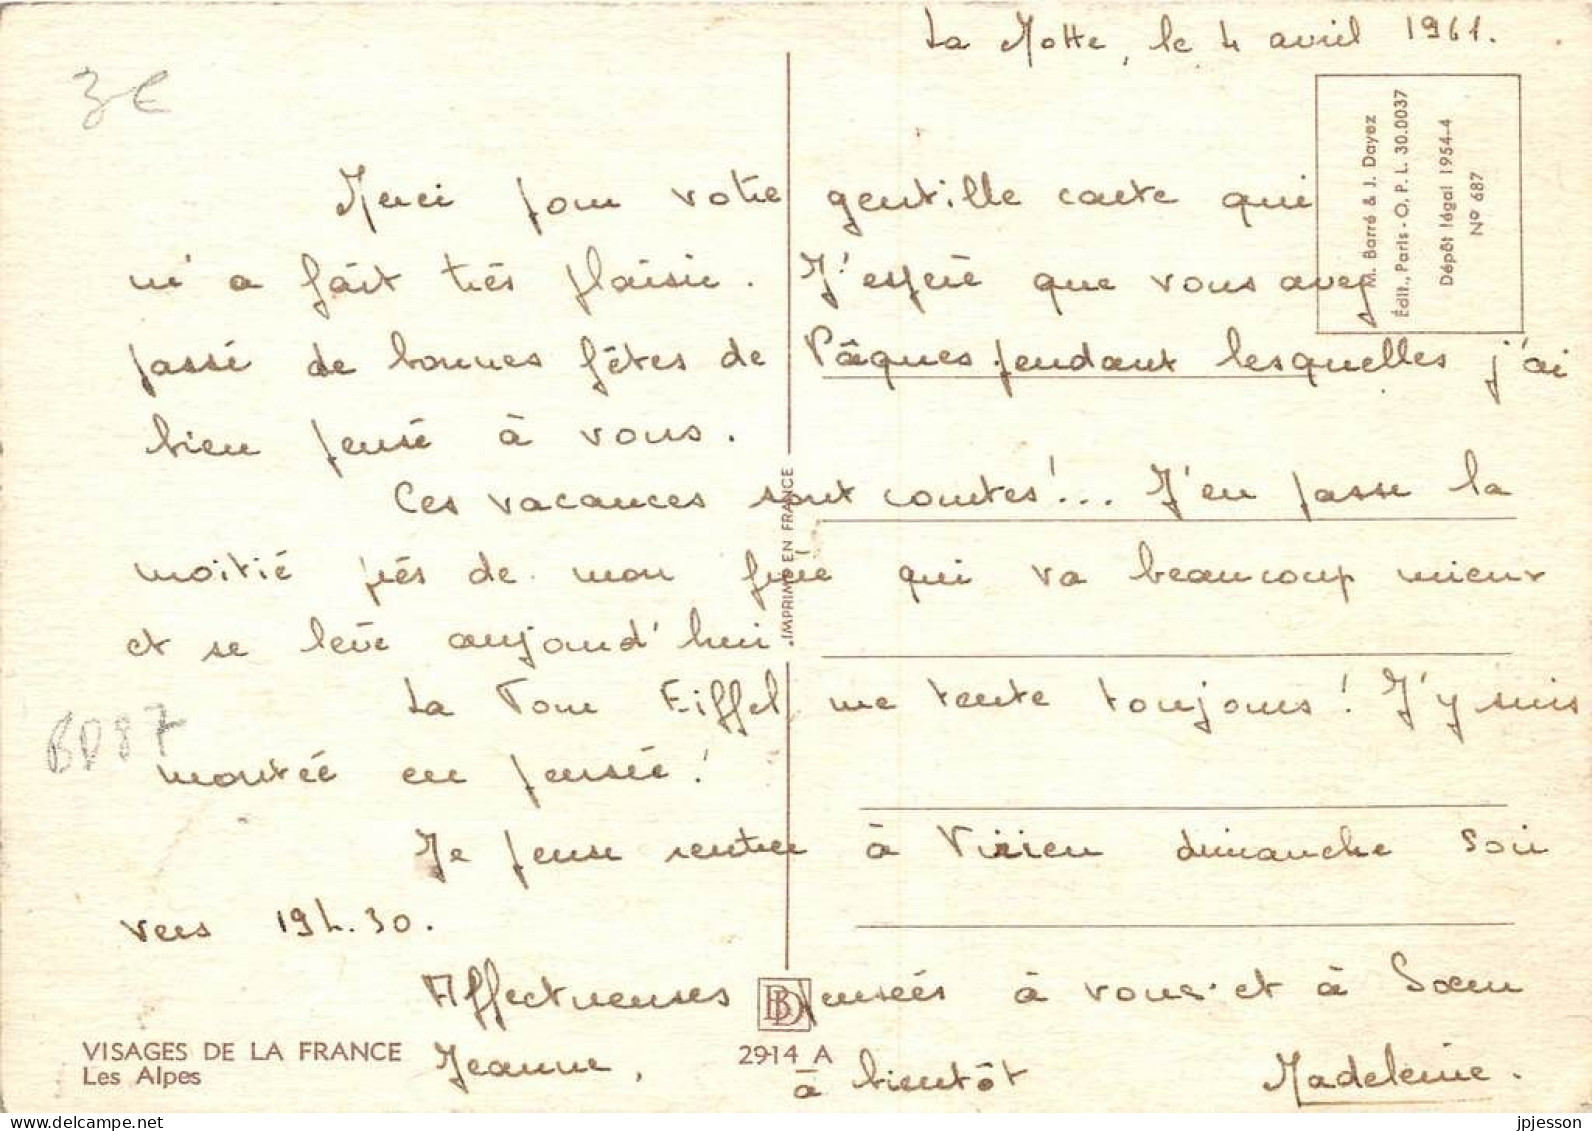 La Motte, le 4 avril 1961.
3€
M. Barré & J. Dayez
Édit., Paris - O. P. L. 30.0037
Dépôt légal 1954-4
Nº 687
Merci pour votre gentille carte qui
m'a fait très plaisir. J'espère que vous avez
passé de bonnes fêtes de Pâques pendant lesquelles j'ai
bien pensé à vous.
Ces vacances sont courtes !... J'en passe la
moitié près de mon frère qui va beaucoup mieux
et se lève aujourd'hui.
La Tour Eiffel me tente toujours ! J'y suis
montée en pensée !
Je pense rentrer à Virieu dimanche soir
vers 19h.30.
Affectueuses pensées à vous et à Sœur
Jeanne,
à bientôt Madeleine.
IMPRIMÉ EN FRANCE
BD87
BD
2914 A
VISAGES DE LA FRANCE
Les Alpes
jpjesson